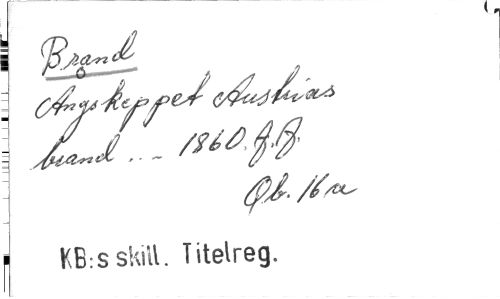 Brand
Angskeppet Austrias
brand ... 1860. J. J.
Qb. 16
KB:s skill. Titelreg.